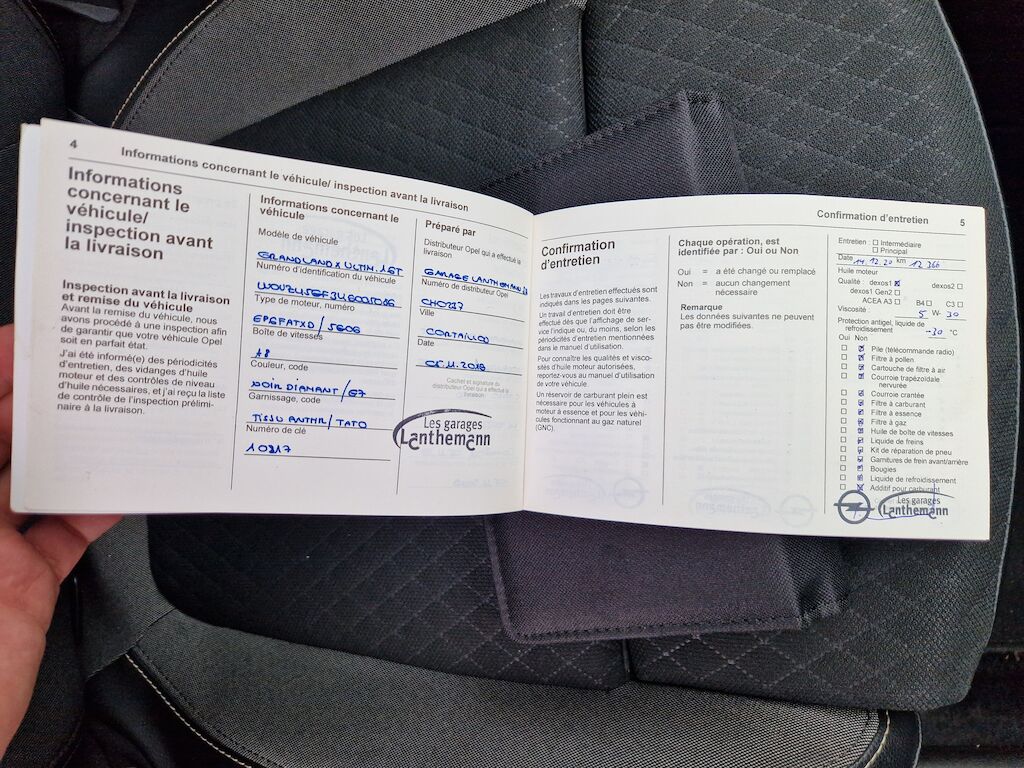 4
Informations concernant le véhicule/ inspection avant la livraison
Informations
concernant le
véhicule/
inspection avant
la livraison
Inspection avant la livraison
et remise du véhicule
Avant la remise du véhicule, nous
avons procédé à une inspection afin
de garantir que votre véhicule Opel
soit en parfait état.
J'ai été informé(e) des périodicités
d'entretien, des vidanges d'huile
moteur et des contrôles de niveau
d'huile nécessaires, et j'ai reçu la liste
de contrôle de l'inspection prélimi-
naire à la livraison.
Informations concernant le
véhicule
Modèle de véhicule
GRANDLAND X ULTIM. 1.6T
Numéro d'identification du véhicule
Type de moteur, numéro
EP6FATXD / 5G06
Boîte de vitesses
A8
Couleur, code
NOIR DIAMANT / G7
Garnissage, code
TISSU ANTHR/ TATO
Numéro de clé
10817
Préparé par
Distributeur Opel qui a effectué la
livraison
GARAGE LANTHEMANN
Numéro de distributeur Opel
CHO727
Ville
CORTAILLOD
Date
05.11.2018
Cachet et signature du
distributeur Opel qui a effectué la
livraison
Les garages
Lanthemann
Confirmation d'entretien
5
Confirmation
d'entretien
Les travaux d'entretien effectués sont
indiqués dans les pages suivantes.
Un travail d'entretien doit être
effectué dès que l'affichage de ser-
vice l'indique ou, du moins, selon les
périodicités d'entretien mentionnées
dans le manuel d'utilisation.
Pour connaître les qualités et visco-
sités d'huile moteur autorisées,
reportez-vous au manuel d'utilisation
de votre véhicule.
Un réservoir de carburant plein est
nécessaire pour les véhicules à
moteur à essence et pour les véhi-
cules fonctionnant au gaz naturel
(GNC).
Chaque opération, est
identifiée par : Oui ou Non
Oui = a été changé ou remplacé
Non = aucun changement
nécessaire
Remarque
Les données suivantes ne peuvent
pas être modifiées.
Entretien : Intermédiaire
Principal
Date 14.12.20 km 12 360
Huile moteur
Qualité : dexos1 dexos2
dexos1 Gen2
ACEA A3 B4 C3
Viscosité : 5 W- 30
Protection antigel, liquide de
refroidissement -30 °C
Oui Non
Pile (télécommande radio)
Filtre à pollen
Cartouche de filtre à air
Courroie trapézoïdale
nervurée
Courroie crantée
Filtre à carburant
Filtre à essence
Filtre à gaz
Huile de boîte de vitesses
Liquide de freins
Kit de réparation de pneu
Garnitures de frein avant/arrière
Bougies
Liquide de refroidissement
Additif pour carburant
Les garages
Lanthemann